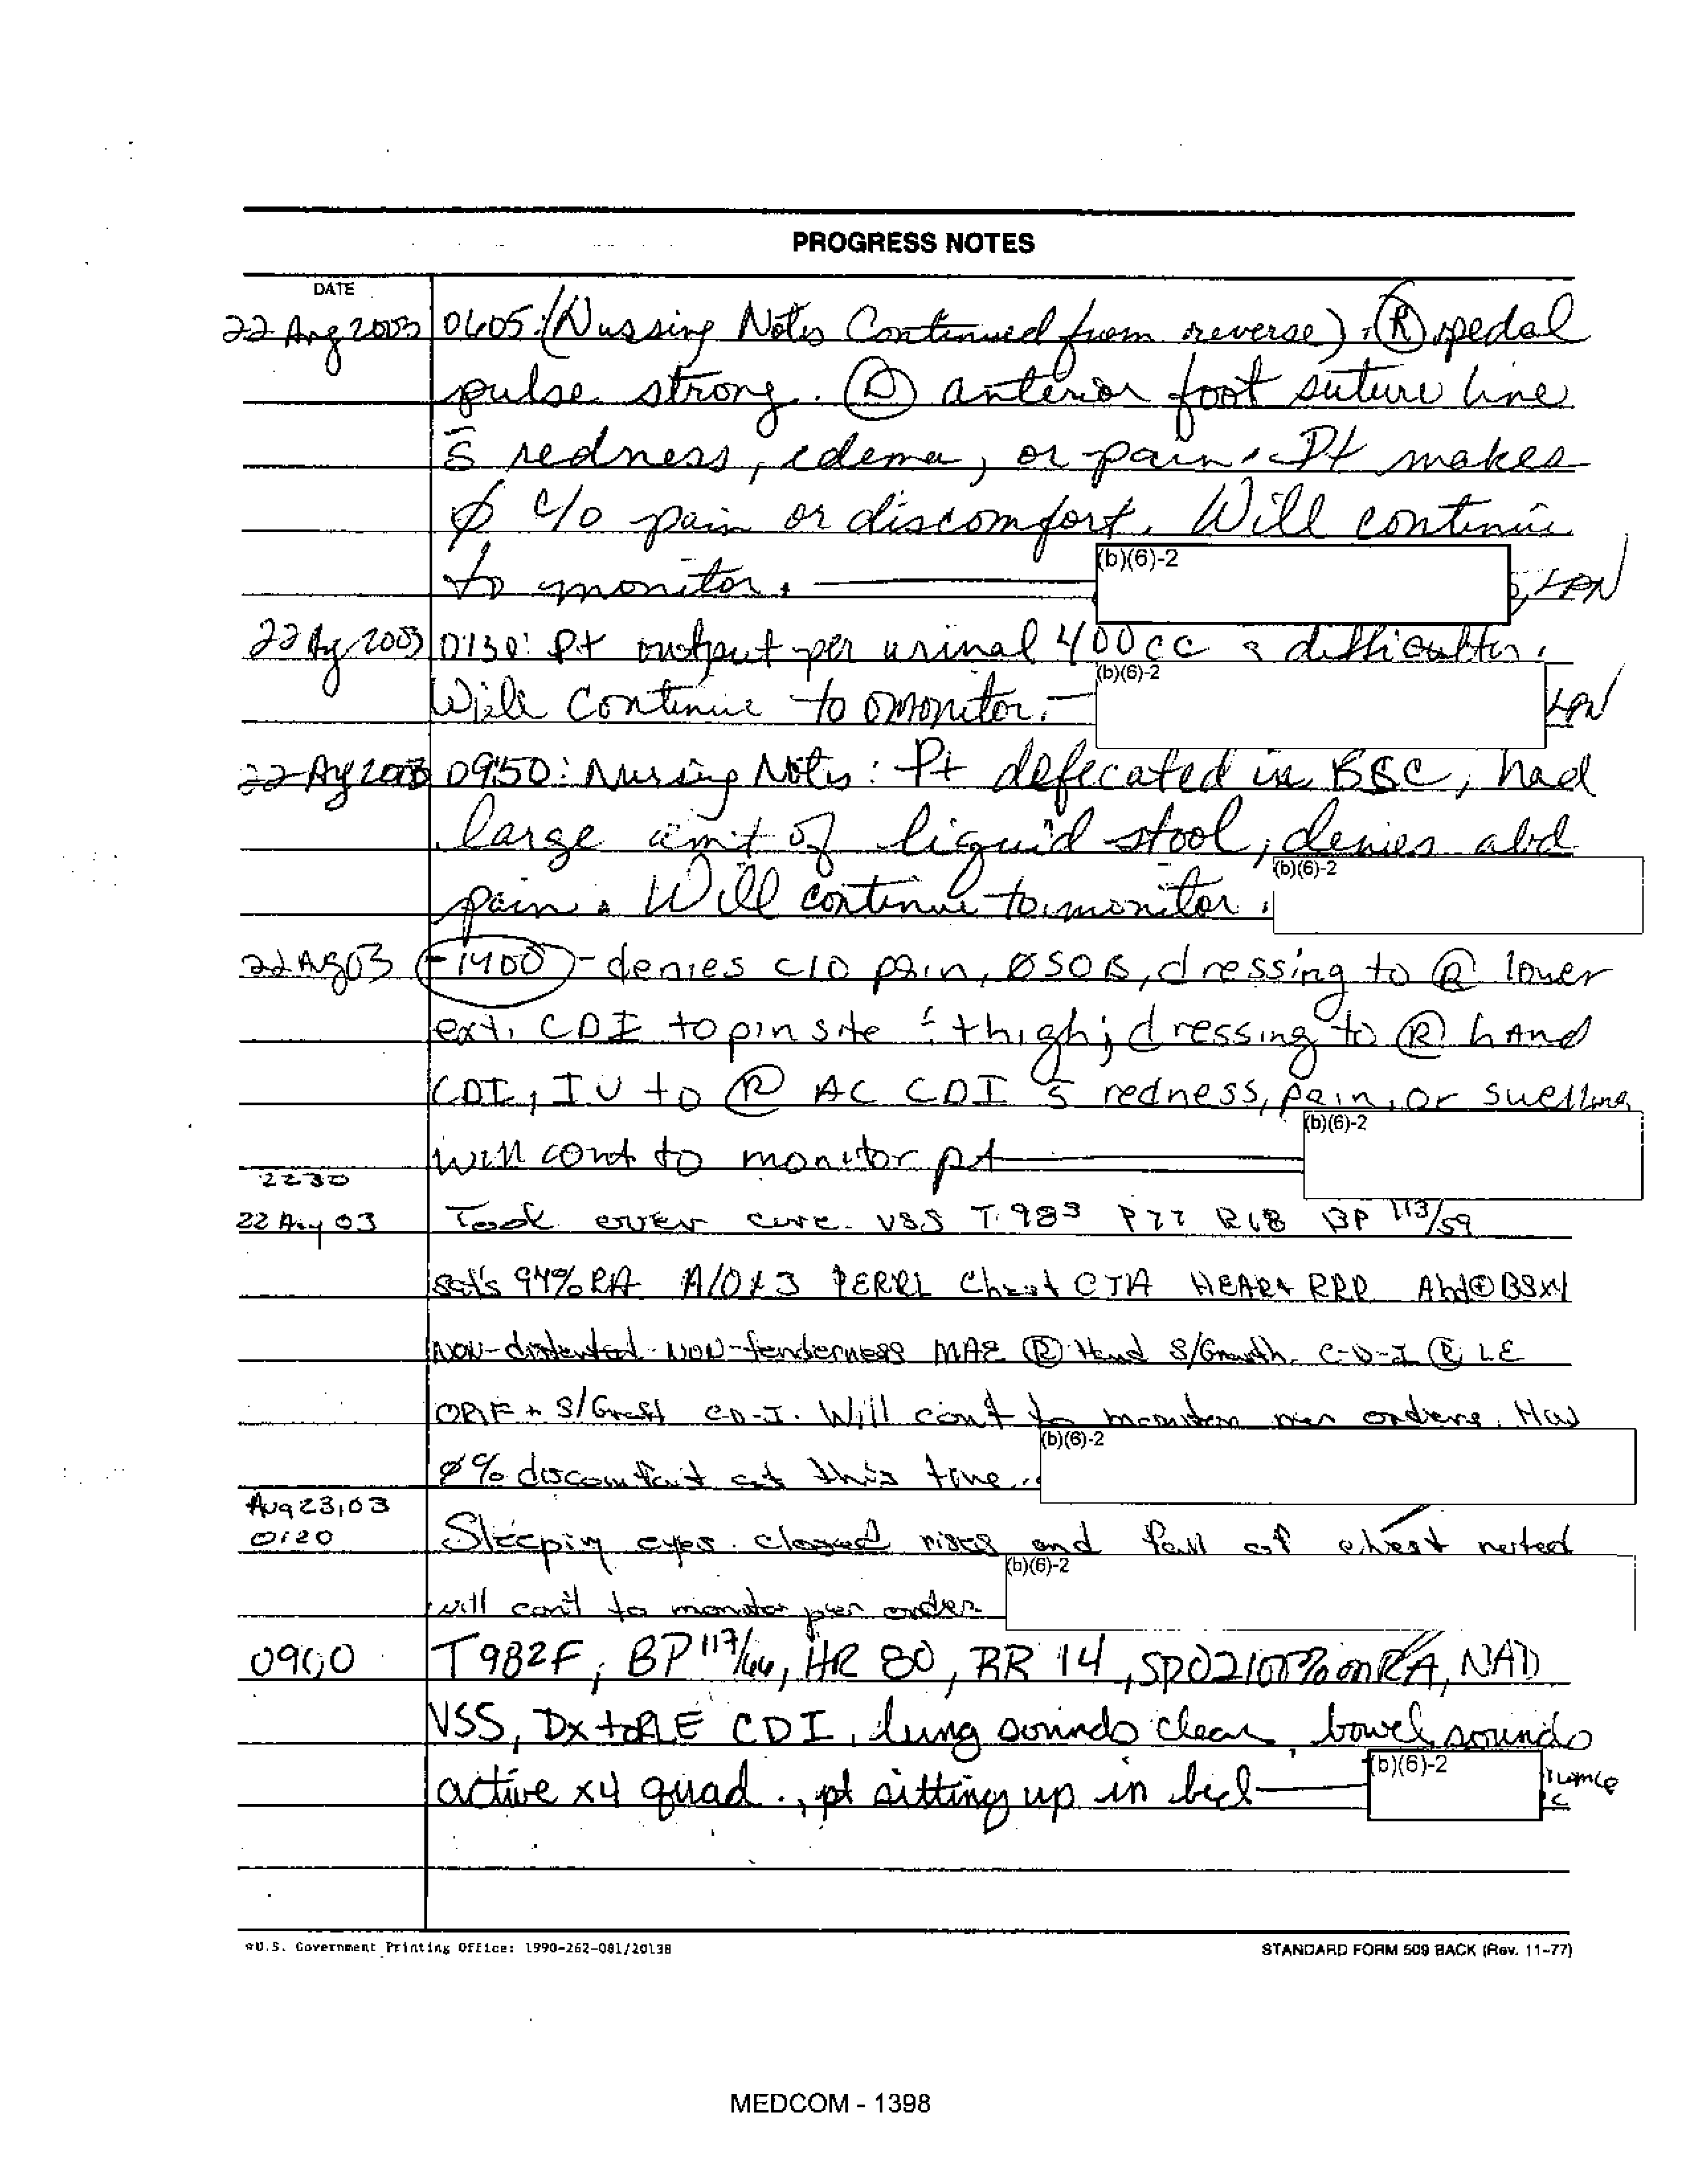 PROGRESS NOTES
DATE
22 Aug 2003 0605: (Nursing Notes Continued from reverse). (R) pedal
pulse strong. anterior foot suture line
s̄ redness, edema, or pain. Pt makes
Ø c/o pain or discomfort. Will continue
to monitor. (b)(6)-2 , LPN
22 Aug 2003 Pt output per urinal 400cc s̄
(b)(6)-2
Will continue to monitor. LPN
22 Aug 2003 0950: Nursing Notes: Pt defecated in BSC, had
large amt of liquid stool, denies abd
(b)(6)-2
pain. Will continue to monitor.
22 Aug 03 -1400- denies c/o pain, Ø SOB, dressing to (R) lower
ext. CDI to pin site thigh; dressing to (R) hand
CDI, IV to (R) AC CDI s̄ redness, pain, or swelling
(b)(6)-2
will cont to monitor pt
2230
22 Aug 03 Took over care. VSS T 98³ P77 R18 BP 113/59
sat's 94% RA A/O x3 PERRL Chest CTA HEART RRR Abd (+) BSx4
NON-distended NON-tenderness MAE (R) Hand C-D-I (R) LE
ORIF + S/Graft C-D-I. Will con't to monitor per orders. Has
(b)(6)-2
Ø c/o discomfort at this time.
Aug 23, 03
0120 Sleeping eyes closed rises and fall of chest noted
(b)(6)-2
will con't to monitor per order
0900 T 982F, BP 117/66, HR 80, RR 14, SPO2 100% on RA, NAD
VSS, Dx to RLE CDI, lung sounds clear, bowel sounds
active x4 quad., pt sitting up in bed (b)(6)-2
☆U.S. Government Printing Office: 1990-262-081/20138
STANDARD FORM 509 BACK (Rev. 11-77)
MEDCOM - 1398